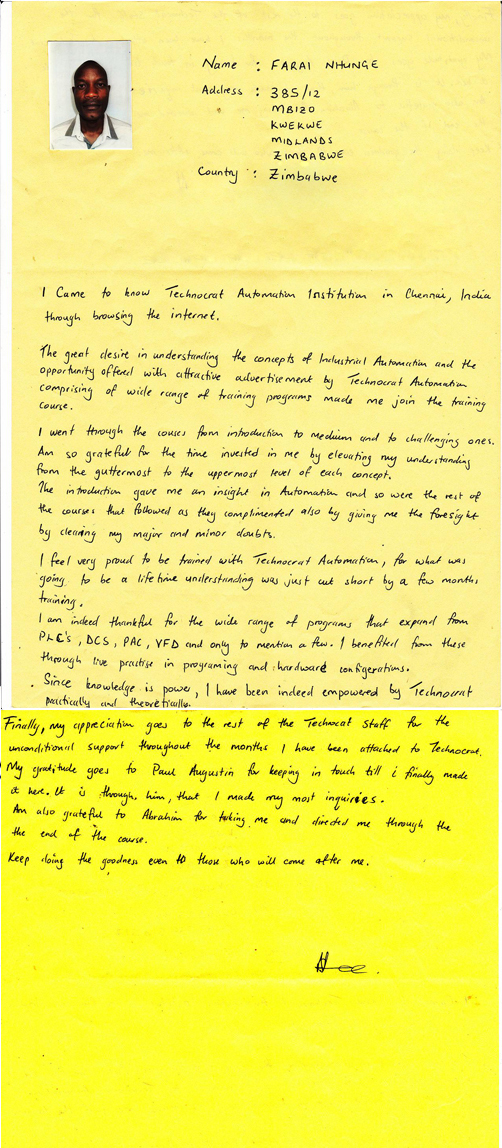 Name : FARAI NHUNGE
Address : 385/12
MBIZO
KWEKWE
MIDLANDS
ZIMBABWE
Country : Zimbabwe
I Came to know Technocrat Automation Institution in Chennai, India
through browsing the internet.
The great desire in understanding the concepts of Industrial Automation and the
opportunity offered with attractive advertisement by Technocrat Automation
comprising of wide range of training programs made me join the training
course.
I went through the couses from introduction to medium and to challenging ones.
Am so grateful for the time invested in me by elevating my understanding
from the guttermost to the uppermost level of each concept.
The introduction gave me an insight in Automation and so were the rest of
the courses that followed as they complimented also by giving me the foresight
by clearing my major and minor doubts.
I feel very proud to be trained with Technocrat Automation, for what was
going to be a lifetime understanding was just cut short by a few months
training.
I am indeed thankful for the wide range of programs that expand from
PLC's, DCS, PAC, VFD and only to mention a few. I benefited from these
through live practise in programing and hardware configerations.
Since knowledge is power, I have been indeed empowered by Technocrat
practically and theoretically.
Finally, my appreciation goes to the rest of the Technocat Staff for the
unconditional support throughout the months I have been attached to Technocrat.
My gratitude goes to Paul Augustin for keeping in touch till i finally made
it here. It is through, him, that I made my most inquiries.
Am also grateful to Abrahim for taking me and directed me through the
the end of the course.
Keep doing the goodness even to those who will come after me.